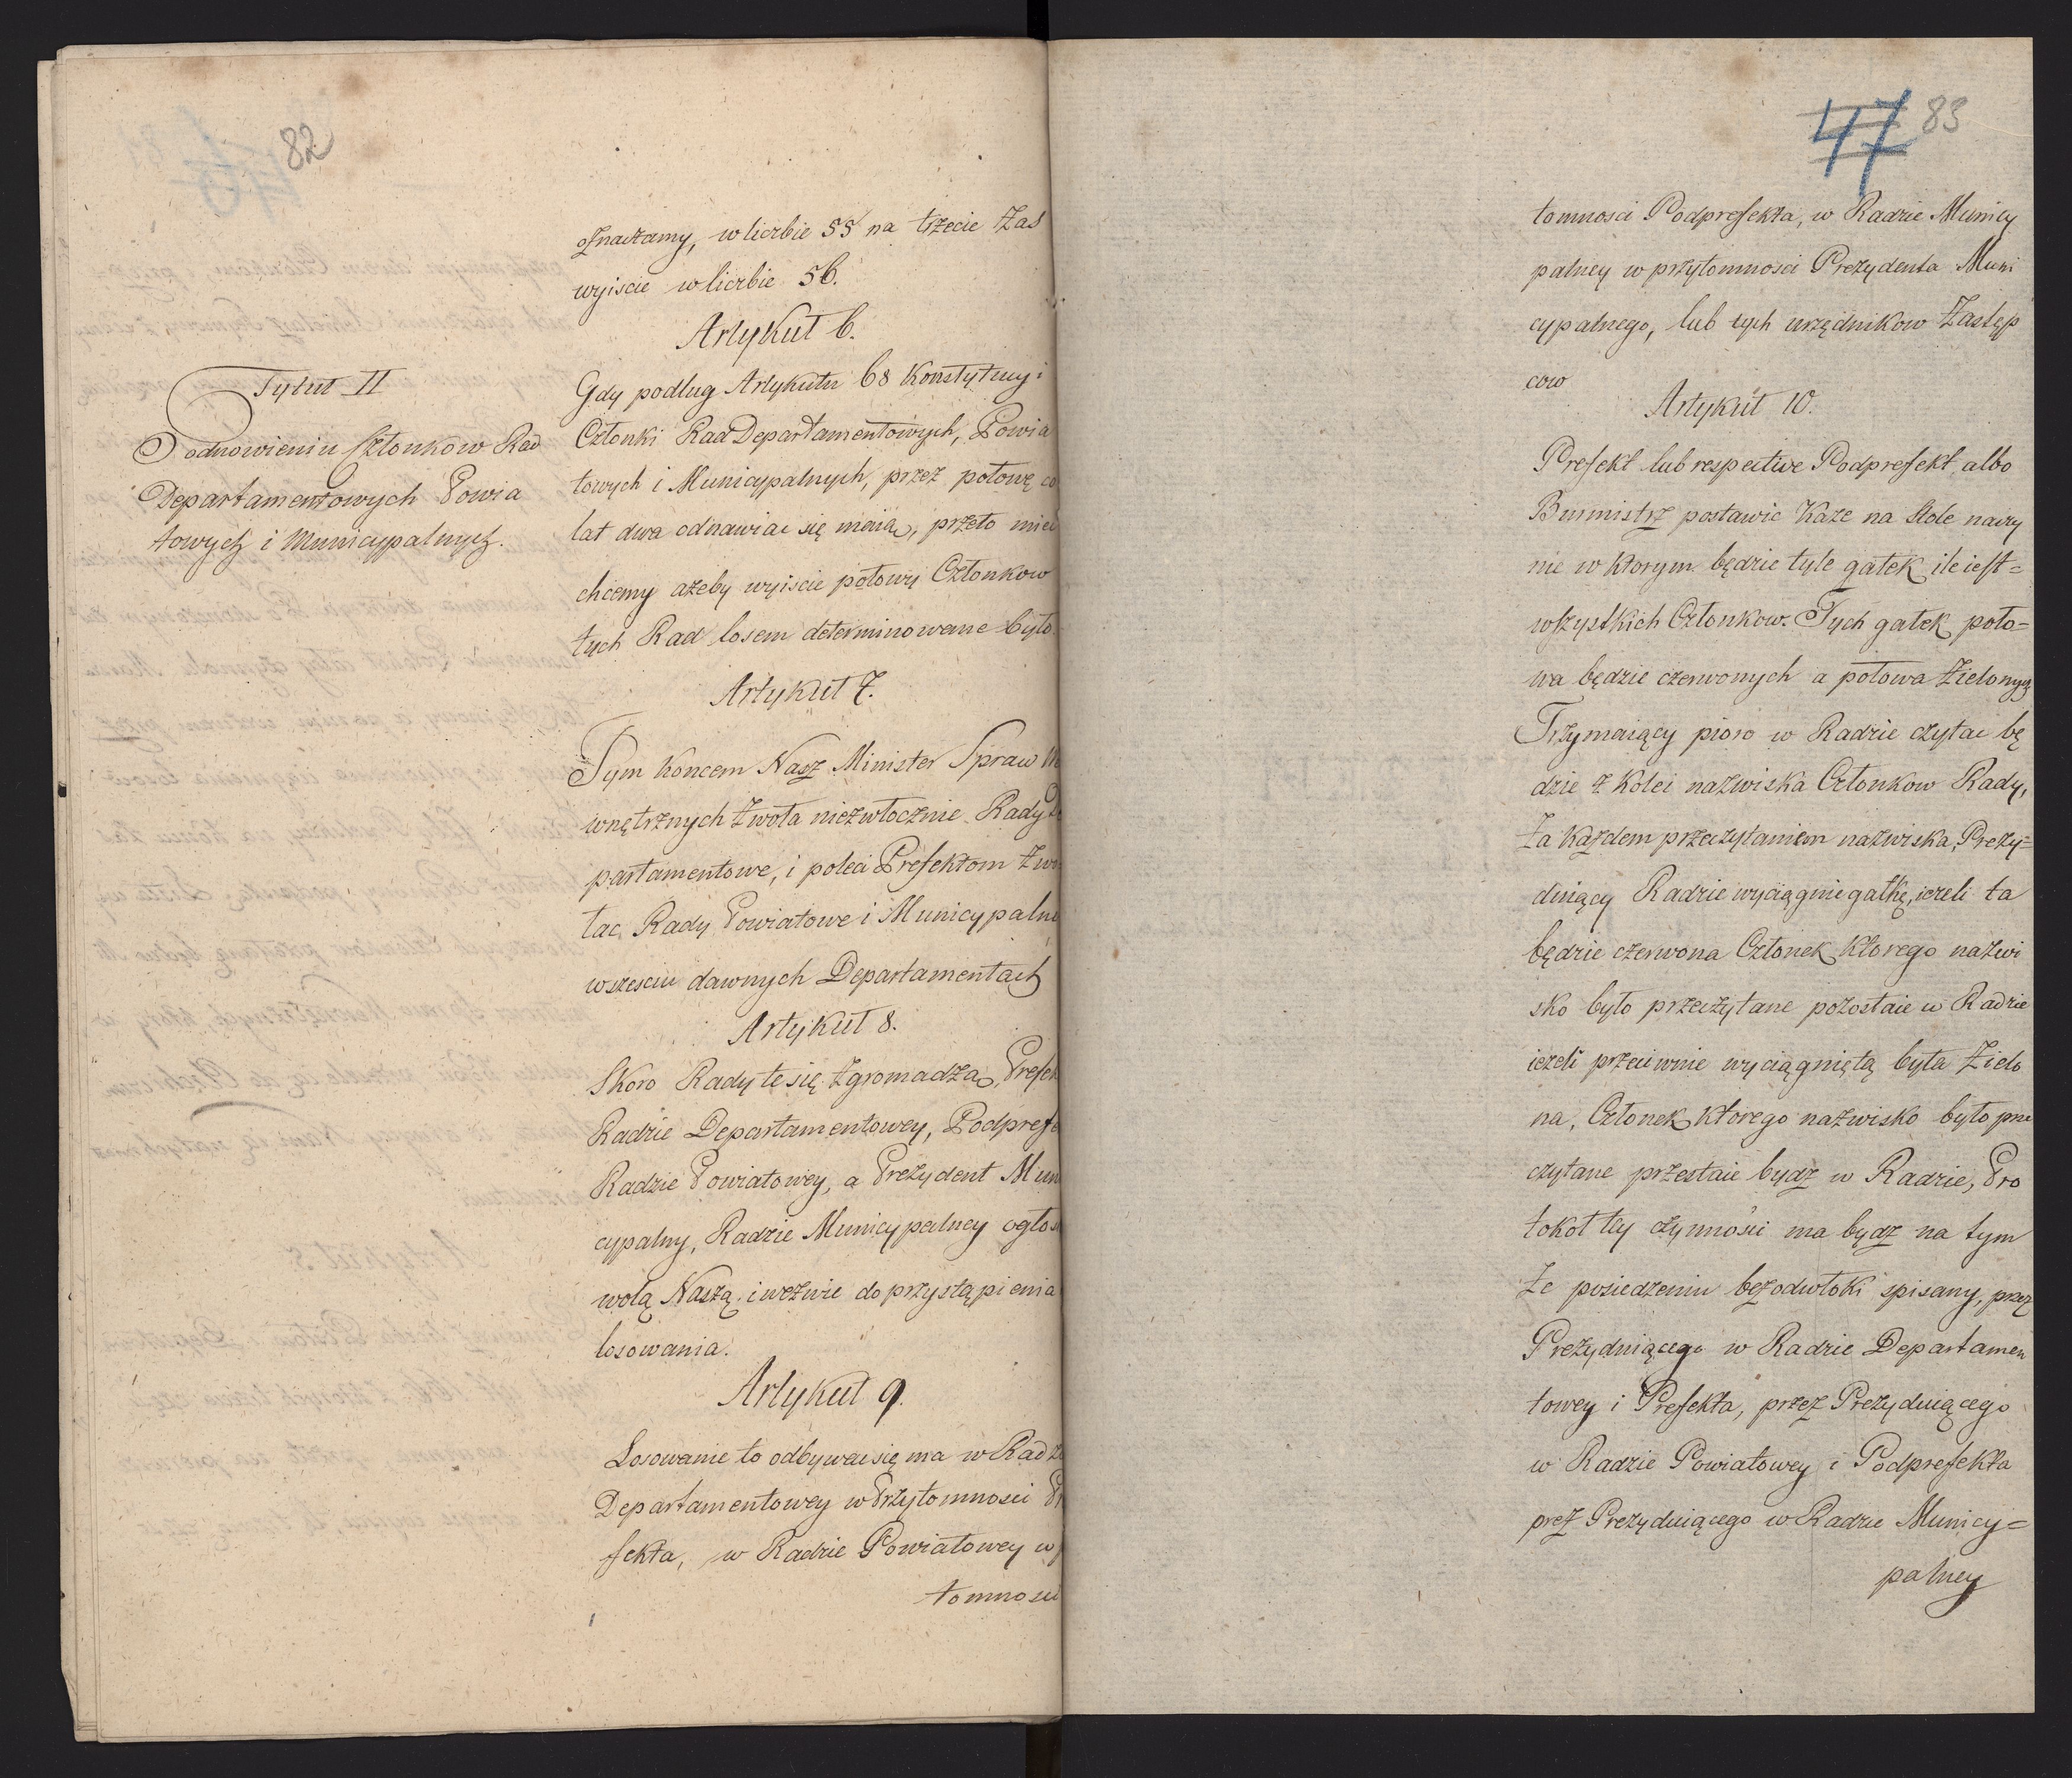 82
oznaczamy, w liczbie 55 na trzecie zas
wyiscie w liczbie 56.
Artykuł 6.
Tytuł II
O odnowieniu Członkow Rad
Departamentowych Powia
towych i Municypalnych.
Gdy podług Artykułu 68 Konstytucyi
Członki Rad Departamentowych, Powia
towych i Municypalnych, przez połowę co
lat dwa odnawiac się maią, przeto miec
chcemy ażeby wyiscie połowy Członkow
tych Rad losem determinowane było.
Artykuł 7.
Tym koncem Nasz Minister Spraw We
wnętrznych zwoła niezwłocznie Rady De
partamentowe, i poleci Prefektom zwo
łac Rady Powiatowe i Municypalne
w szesciu dawnych Departamentach
Artykuł 8.
Skoro Rady te się zgromadzą, Prefek
Radzie Departamentowey, Podprefe
Radzie Powiatowey, a Prezydent Muni
cypalny, Radzie Municypalney ogłosi
wolą Naszą, i wezwie do przystąpienia
losowania.
Artykuł 9.
Losowanie to odbywac się ma w Radzie
Departamentowey w Przytomnosci Pr
fekta, w Radzie Powiatowey w
tomnosci
47 83
tomnosci Podprefekta, w Radzie Municy
palney w przytomnosci Prezydenta Muni
cypalnego, lub tych urzędnikow Zastęp
cow
Artykuł 10.
Prefekt lub respective Podprefekt, albo
Burmistrz postawic każe na stole naczy
nie w ktorym będzie tyle gałek, ile iest=
wszystkich Członkow. Tych gałek poło=
wa będzie czerwonych a połowa zielonych
Trzymaiący pioro w Radzie czytac bę
dzie z kolei nazwiska Członkow Rady,
Za każdem przeczytaniem nazwiska, Prezy=
duiący Radzie wyciągnie gałkę, ieżeli ta
będzie czerwona Członek, ktorego nazwi
sko było przeczytane pozostaie w Radzie
ieżeli przeciwnie wyciągniętą była zielo
na, Członek, ktorego nazwisko było prze
czytane przestaie bydz w Radzie, Pro
tokoł tey czynnosci ma bydz na tym
że posiedzeniu bez odwłoki spisany, przez
Prezyduiącego w Radzie Departamen
towey i Prefekta, przez Prezyduiącego
w Radzie Powiatowey i Podprefekta
prez Prezyduiącego w Radzie Municy=
palney